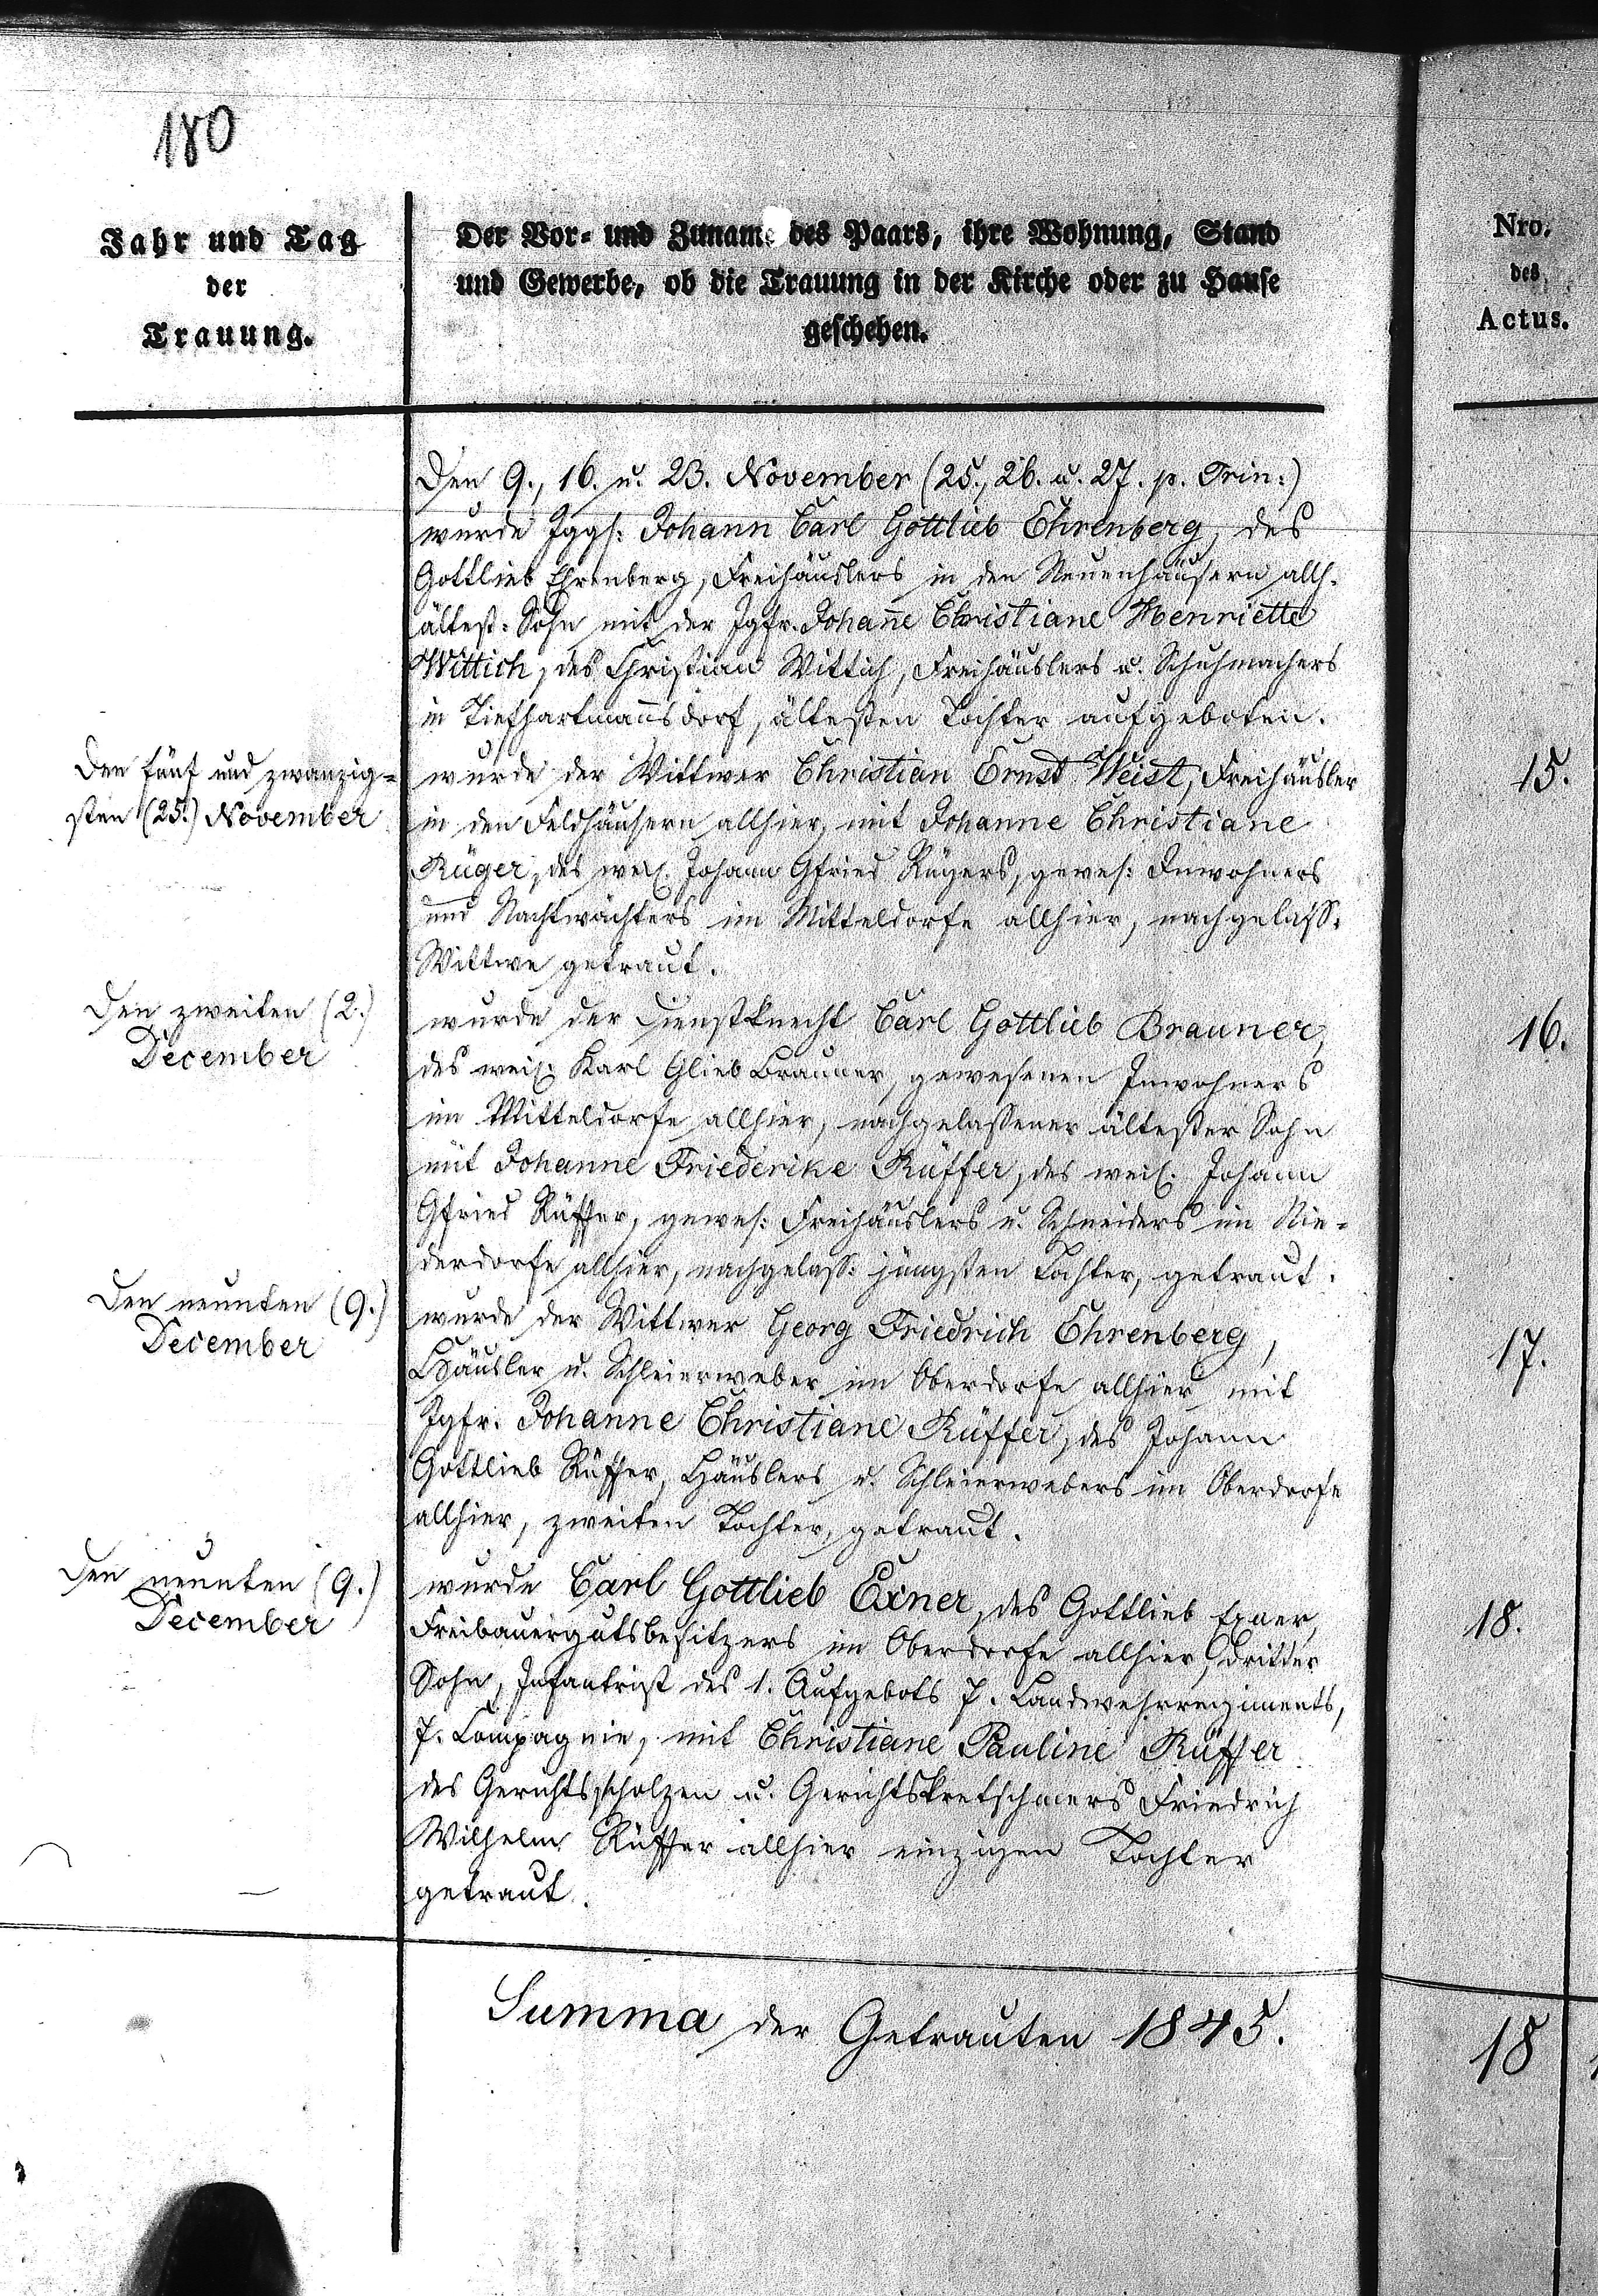 180
Jahr und Tag
der
Trauung.
Der Vor- und Zuname des Paars, ihre Wohnung, Stand
und Gewerbe, ob die Trauung in der Kirche oder zu Hause
geschehen.
Nro.
des
Actus.
Den 9., 16. u. 23. November (25., 26. u. 27. p. Trin:)
wurde Jggs: Johann Carl Gottlieb Ehrenberg, des
Gottlieb Ehrenberg, Freihäuslers in den Neuenhäusern allh.
ältest: Sohn mit der Jgfr. Johañe Christiane Henriette
Wittich, des Christian Wittich, Freihäuslers u. Schuhmachers
in Tiefhartmañsdorf, ältesten Tochter aufgeboten.
Den fünf und zwanzig-
sten (25.) November
wurde der Wittwer Christian Ernst Weist, Freihäusler
in den Feldhäusern allhier, mit Johanne Christiane
Rüger, des weil. Johann Gfried Rügers, gewes: Inwohners
und Nachtwächters im Mitteldorfe allhier, nachgelass:
Wittwe getraut.
15.
Den zweiten (2.)
December
wurde der Dienstknecht Carl Gottlieb Brauner,
des weil. Karl Glieb Brauner, gewesenen Inwohners
im Mitteldorfe allhier, nachgelassener ältester Sohn
mit Johanne Friederike Rüffer, des weil. Johann
Gfried Rüffer, gewes: Freihäuslers u. Schneiders im Nie-
derdorfe allhier, nachgelass: jüngsten Tochter, getraut.
16.
Den neunten (9.)
December
wurde der Wittwer Georg Friedrich Ehrenberg,
Häusler u. Schleierweber im Oberdorfe allhier mit
Jgfr. Johanne Christiane Rüffer, des Johann
Gottlieb Rüffer, Häuslers u. Schleierwebers im Oberdorfe
allhier, zweiten Tochter, getraut.
17.
Den neunten (9.)
December
wurde Carl Gottlieb Exner, des Gottlieb Exner,
Freibauergutsbesitzers im Oberdorfe allhier, dritter
Sohn, Infantrist des 1. Aufgebots 7. Landwehrregiments,
7. Compagnie, mit Christiane Pauline Rüffer
des Gerichtsscholzen u. Gerichtskretschmers Friedrich
Wilhelm Rüffer allhier einzigen Tochter
getraut.
18.
Summa der Getrauten 1845.
18